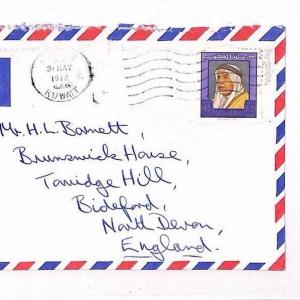 31 MAY
1972
KUWAIT
دولة الكويت
Mr. H.L. Barnett,
Brunswick House,
Torridge Hill,
Bideford,
North Devon,
England.